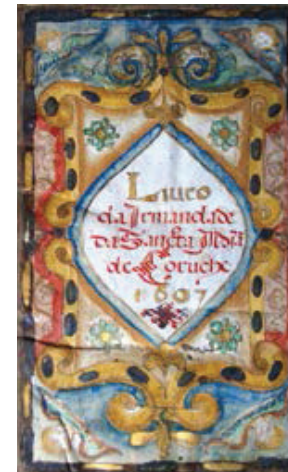 Liuro
da Irmandade
da Sancta Mďia
de Coruche
1607